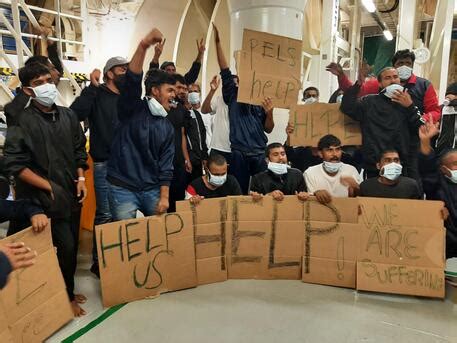 PELS
help
HELP
HELP
US
HELP!
WE
ARE
SUFFERING